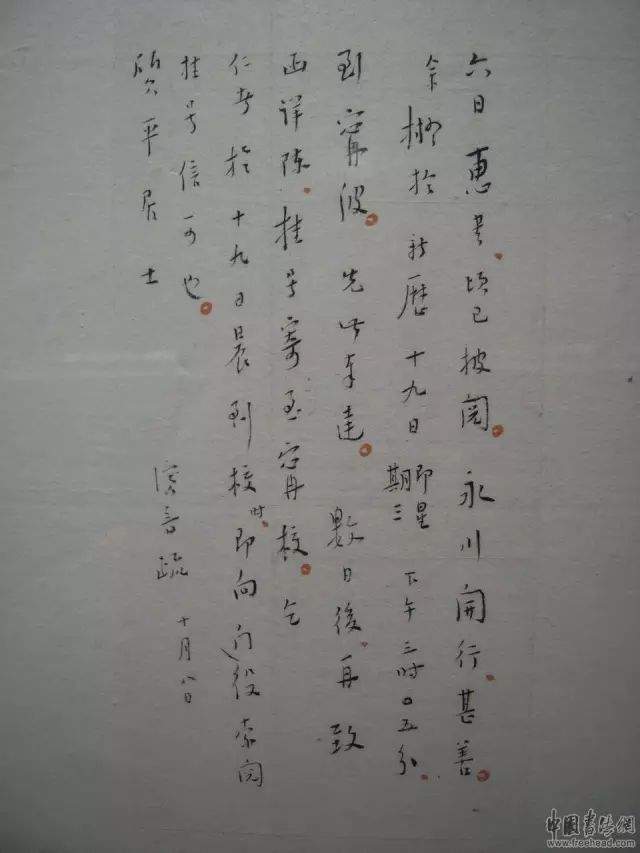 六日惠書。頃已披閱。永川開行。甚善。
余擬於新曆十九日即星期三下午三时〇五分。
到甯波。先此奉達。數日後。再致
函詳陳。挂号寄至甯校。乞
仁者於十九日晨到校时。即向门役索閱
挂号信可也。
质平居士
演音疏 十月八日
中國書法網
www.freehead.com